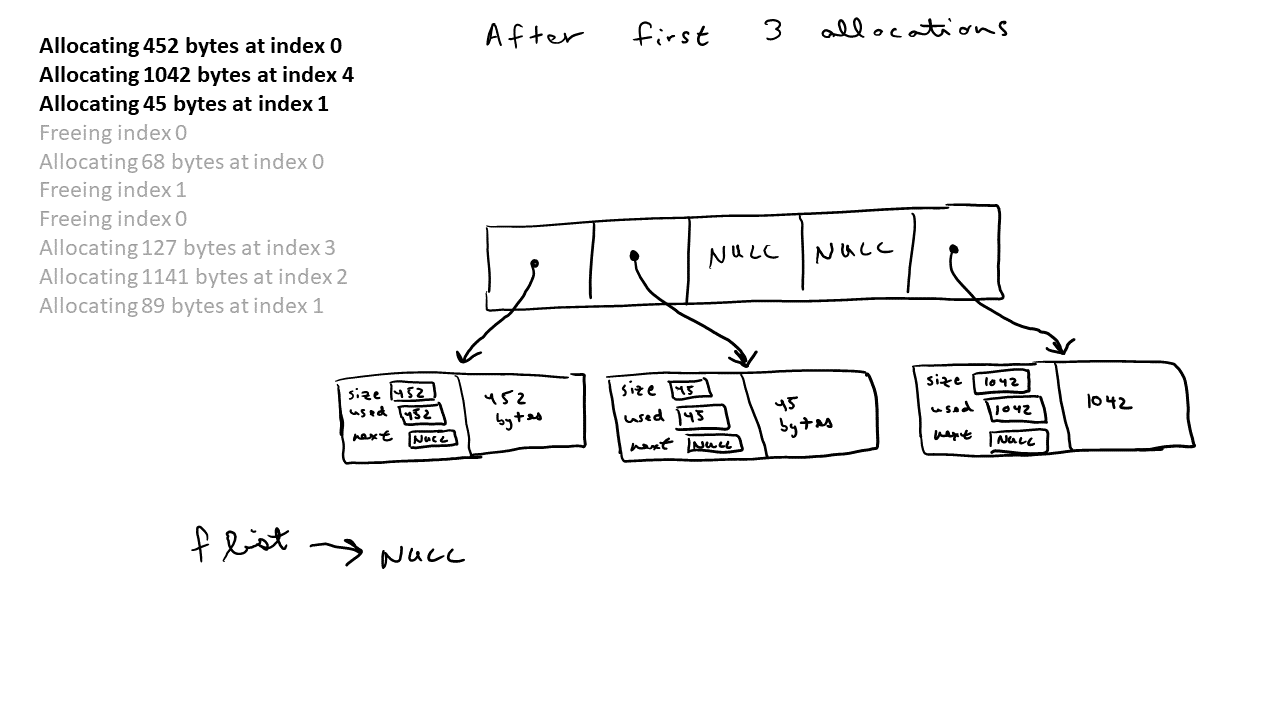 After first 3 allocations
Allocating 452 bytes at index 0
Allocating 1042 bytes at index 4
Allocating 45 bytes at index 1
Freeing index 0
Allocating 68 bytes at index 0
Freeing index 1
Freeing index 0
Allocating 127 bytes at index 3
Allocating 1141 bytes at index 2
Allocating 89 bytes at index 1
NULL NULL
size 452
used 452
next NULL
452
bytes
size 45
used 45
next NULL
45
bytes
size 1042
used 1042
next NULL
1042
flist → NULL